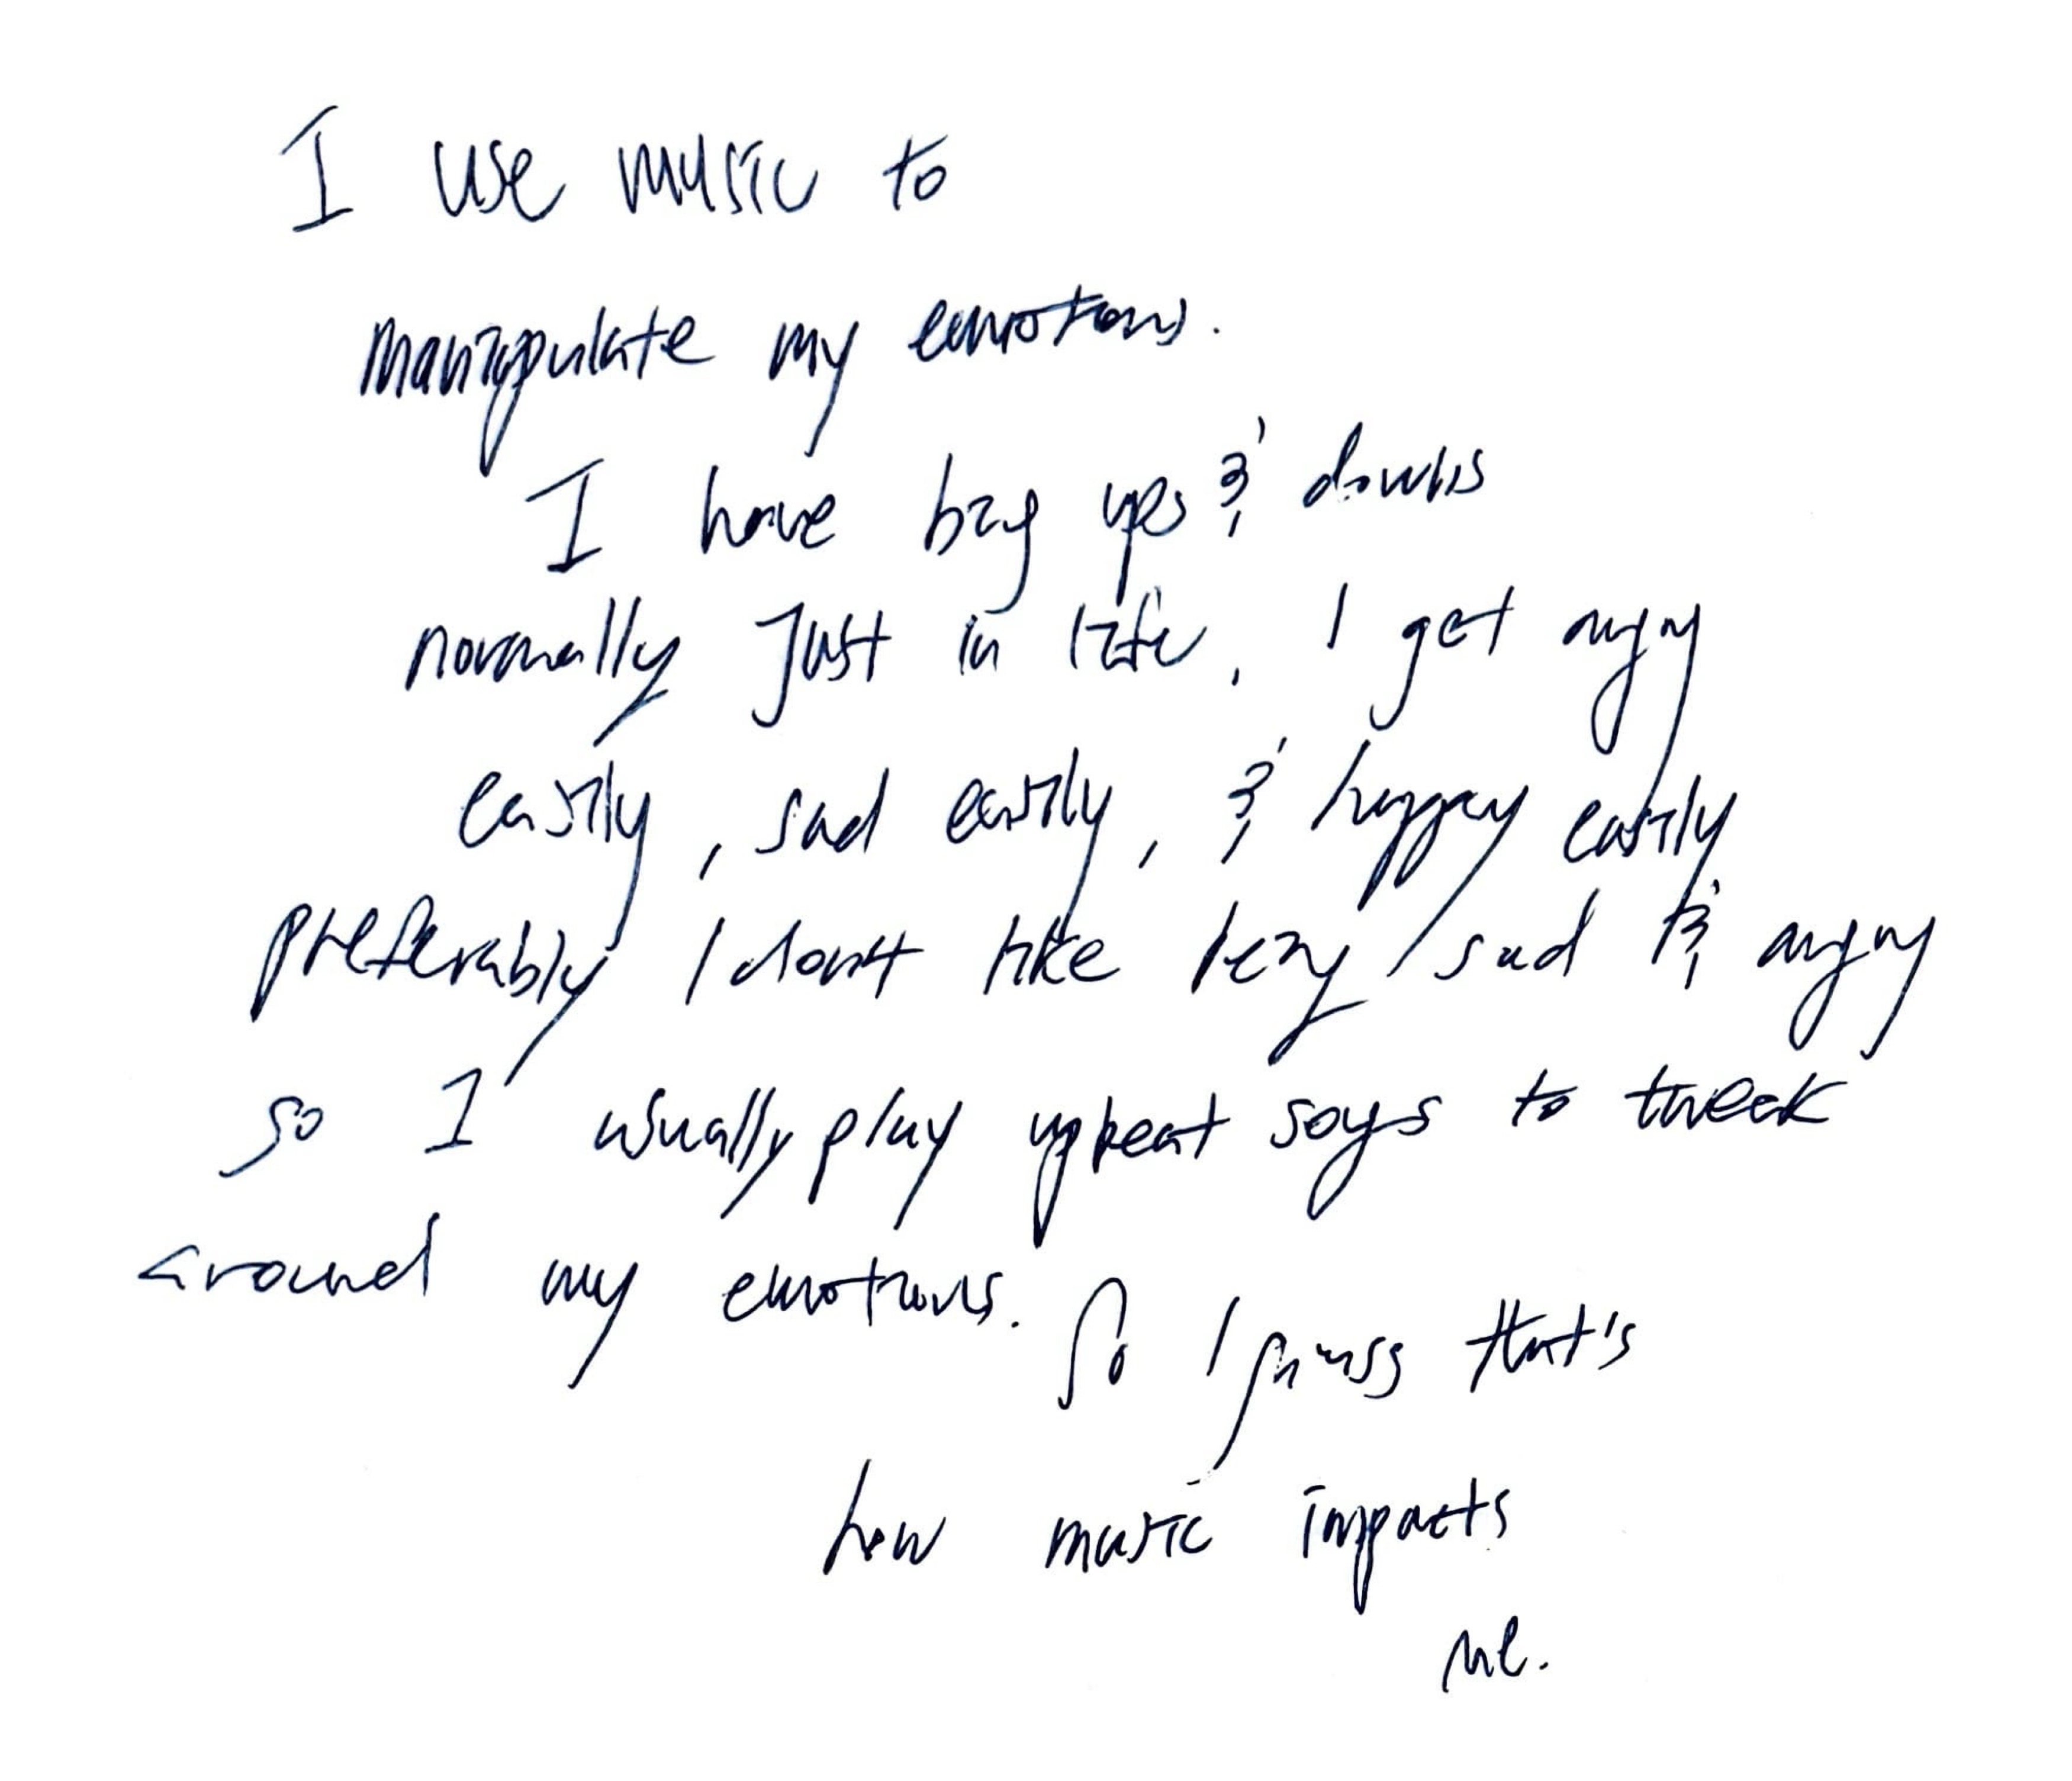 I use music to
manipulate my emotions.
I have big ups & downs
normally just in life. I get angry
easily, sad easily, & happy easily
preferably I don't like being sad & angry
so I usually play upbeat songs to tweak
around my emotions. So I guess that's
how music impacts
me.